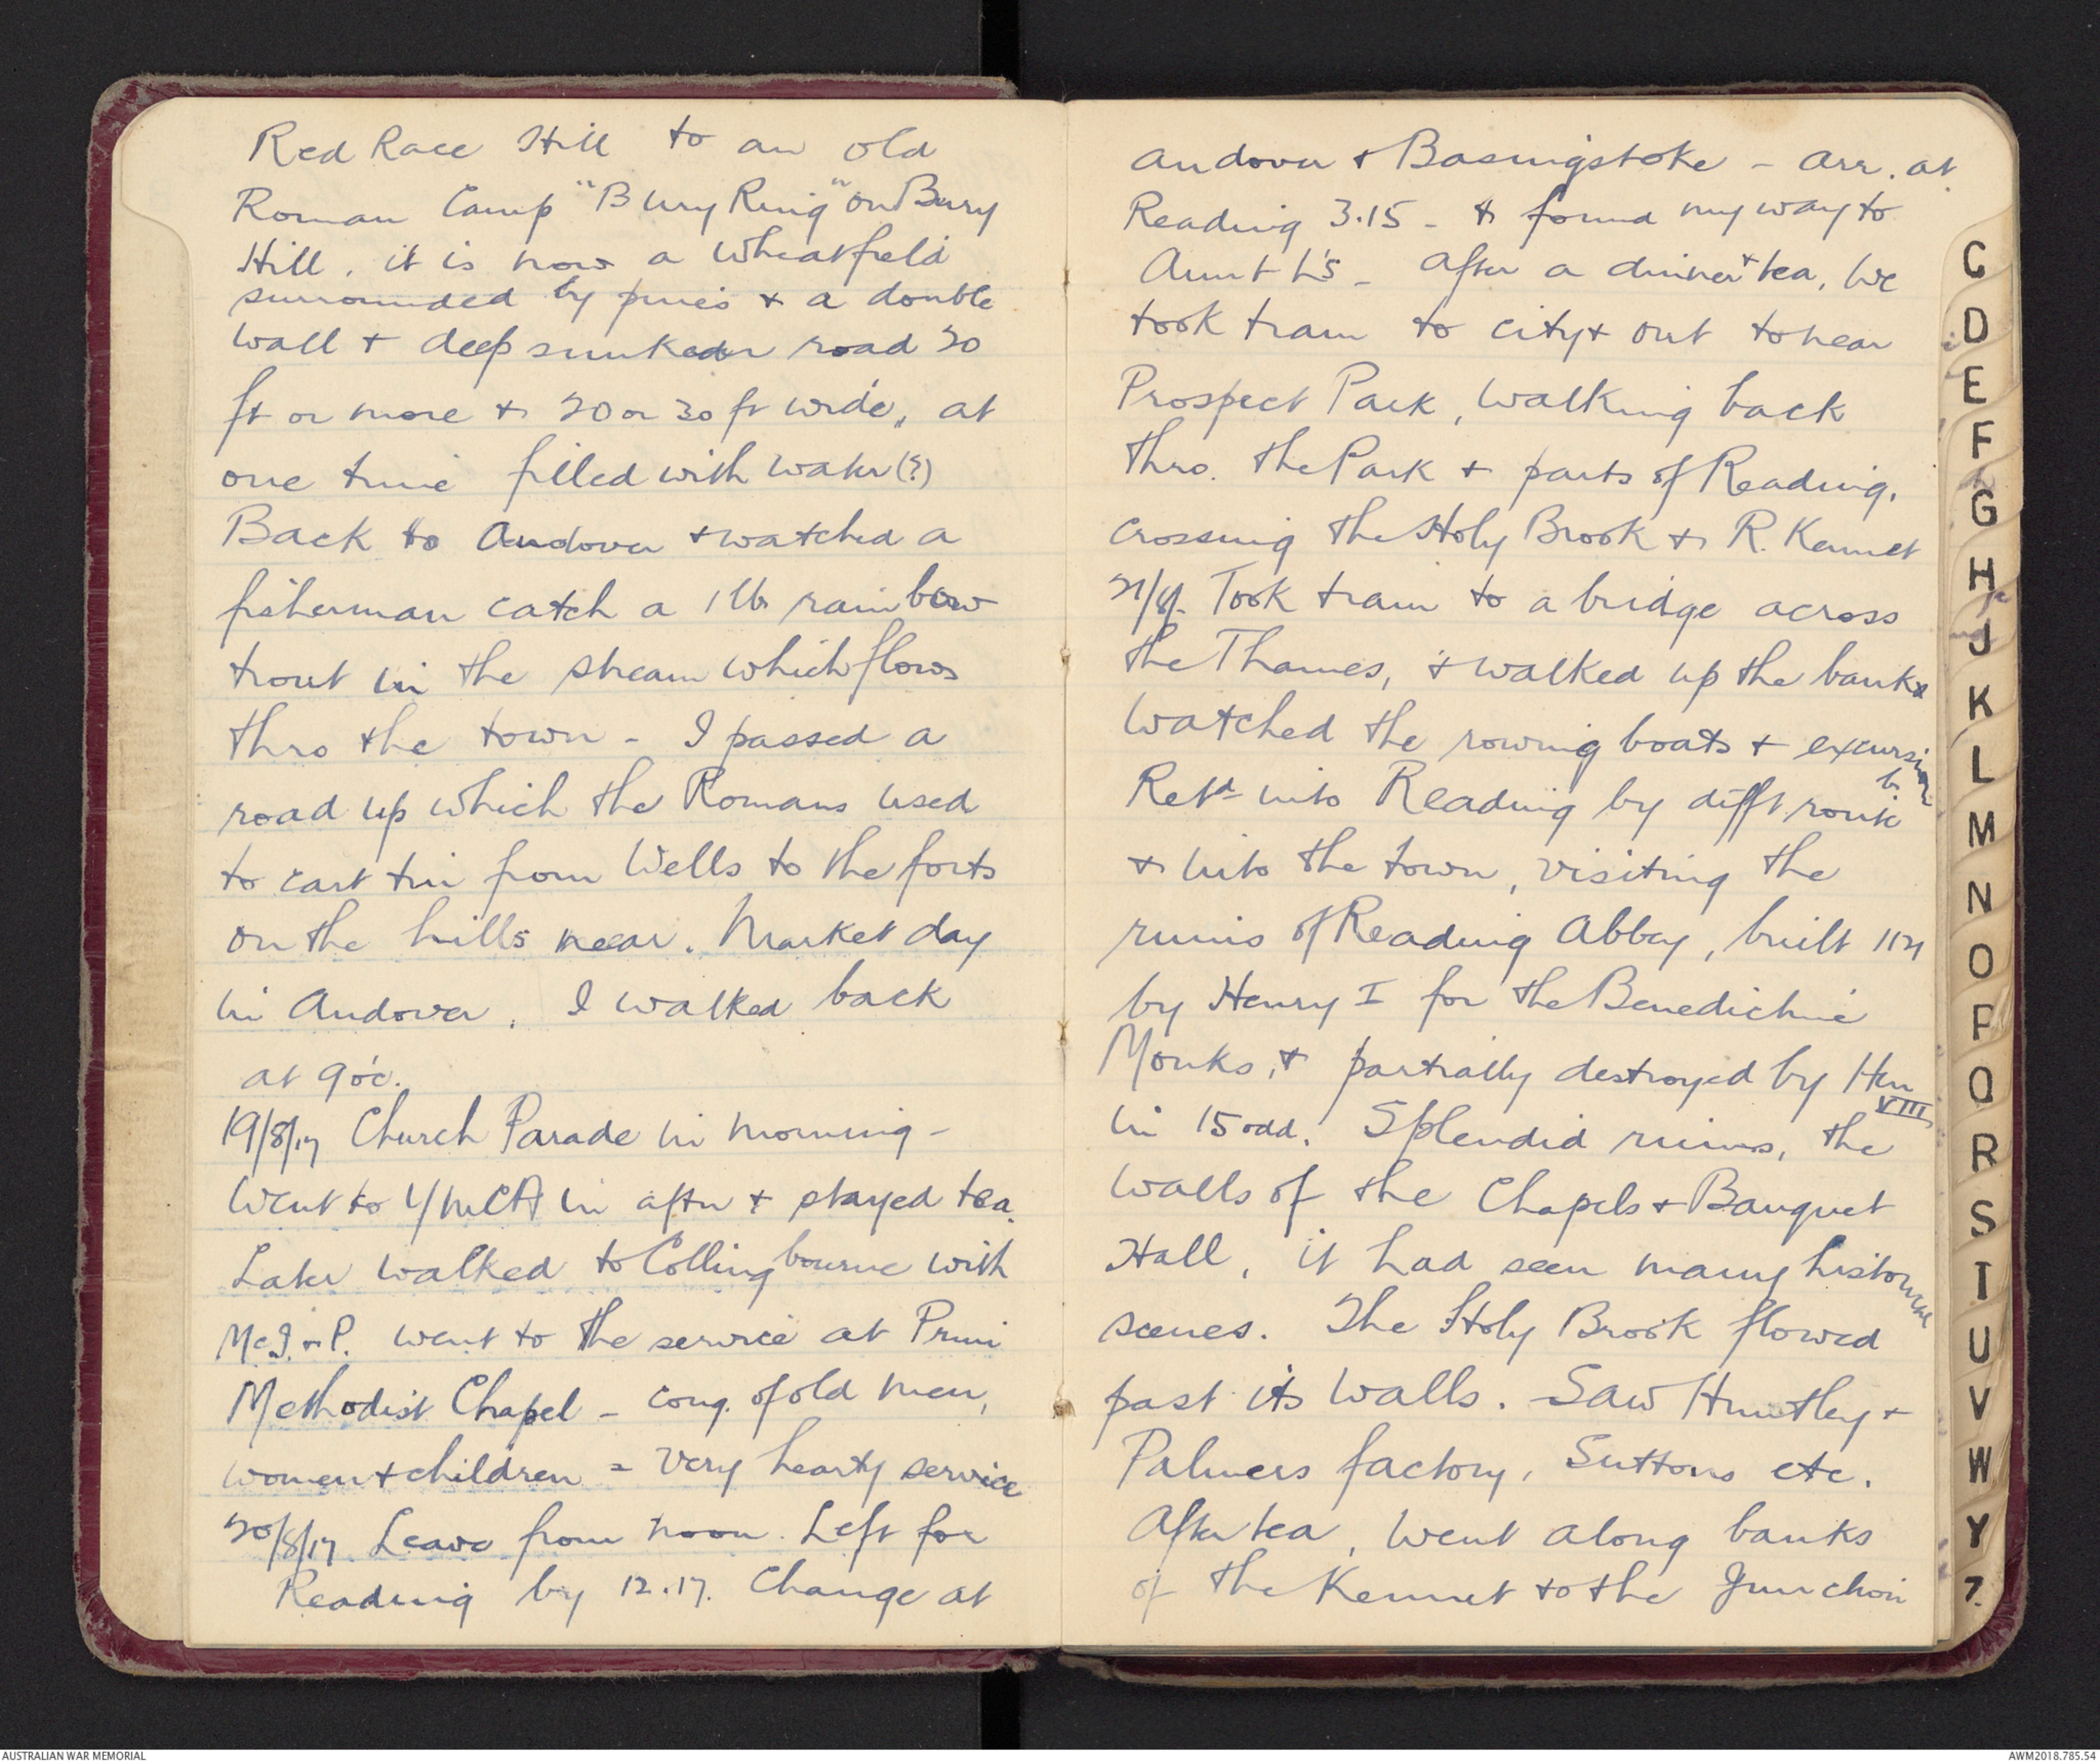 Red Race Hill to an old
Roman Camp "Bury Ring" on Bury
Hill, it is now a wheatfield
surrounded by pines & a double
wall & deep sunkedn road 20
ft or more & 20 or 30 ft wide, at
one time filled with water (?)
Back to Andover & watched a
fisherman catch a 1 lb rainbow
trout in the stream which flows
thro the town - I passed a
road up which the Romans used
to cart tin from Wells to the forts
on the hills near. Market day
in Andover. I walked back
at 9 o'c.
19/8/17 Church Parade in morning -
Went to YMCA in aftn & stayed tea.
Later walked to Collingbourne with
McJ. & P. went to the service at Prim
Methodist Chapel - cong. of old men,
women & children = very hearty service
20/8/17 Leave from noon. Left for
Reading by 12.17. Change at
Andover & Basingstoke - arr. at
Reading 3.15 - & found my way to
Aunt L's - After a dinner & tea, we
took tram to city & out to near
Prospect Park, walking back
thro. the Park & parts of Reading,
crossing the Holy Brook & R. Kennet
21/8/- Took tram to a bridge across
the Thames, & walked up the bank &
watched the rowing boats & excursion
b.
Retd into Reading by difft route
& into the town, visiting the
ruins of Reading Abbey, built 1121
by Henry I for the Benedictine
Monks, & partially destroyed by Hen
VIII
in 15 odd. Splendid ruins, the
walls of the Chapels & Banquet
Hall, it had seen many historical
scenes. The Holy Brook flowed
past its walls. Saw Huntley &
Palmers factory, Suttons etc.
After tea, went along banks
of the Kennet to the Junction
C
D
E
F
G
H
J
K
L
M
N
O
P
Q
R
S
T
U
V
W
Y
Z
AUSTRALIAN WAR MEMORIAL
AWM2018.785.54